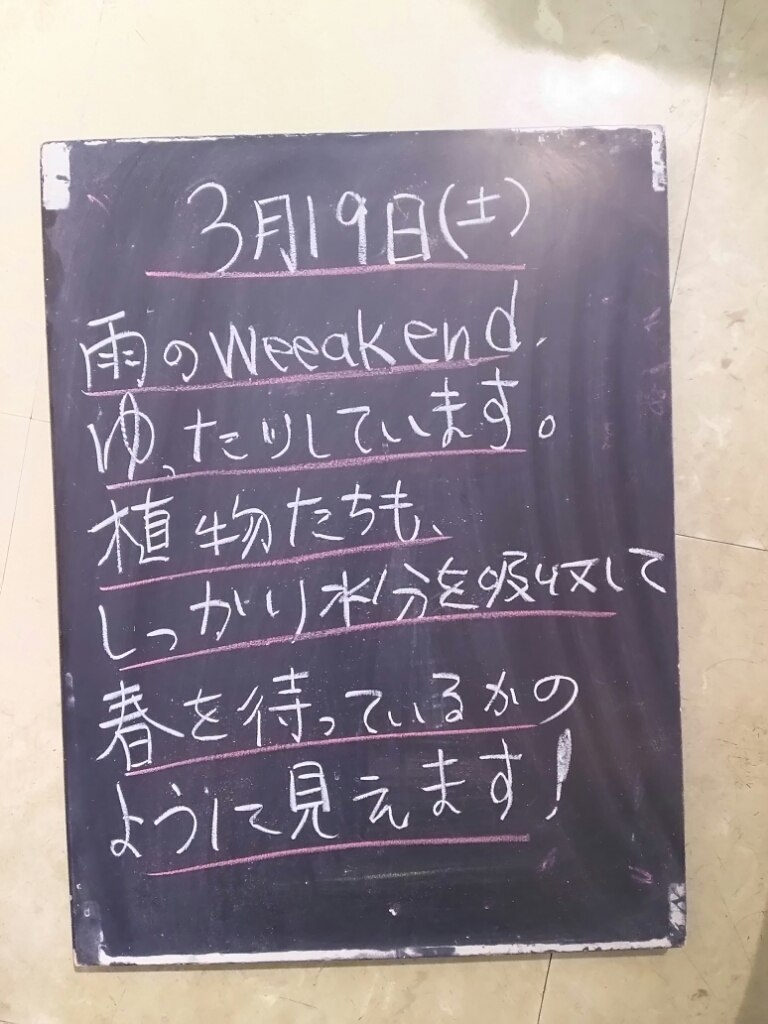 3月19日(土)
雨のweeakend.
ゆったりしています。
植物たちも、
しっかり水分を吸収して
春を待っているかの
ように見えます!